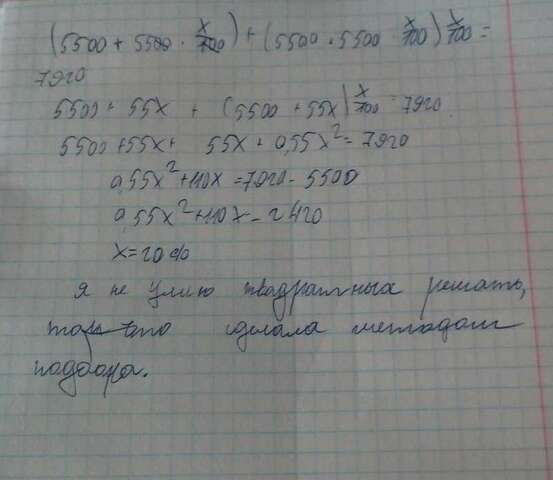 (5500 + 5500 · x/100) + (5500 + 5500 x/100) x/100 =
7920
5500 + 55x + (5500 + 55x) x/100 = 7920
5500 + 55x + 55x + 0,55x² = 7920
0,55x² + 110x = 7920 - 5500
0,55x² + 110x = 2420
x = 20%
я не умею квадратных решать,
так что сделала методом
подбора.